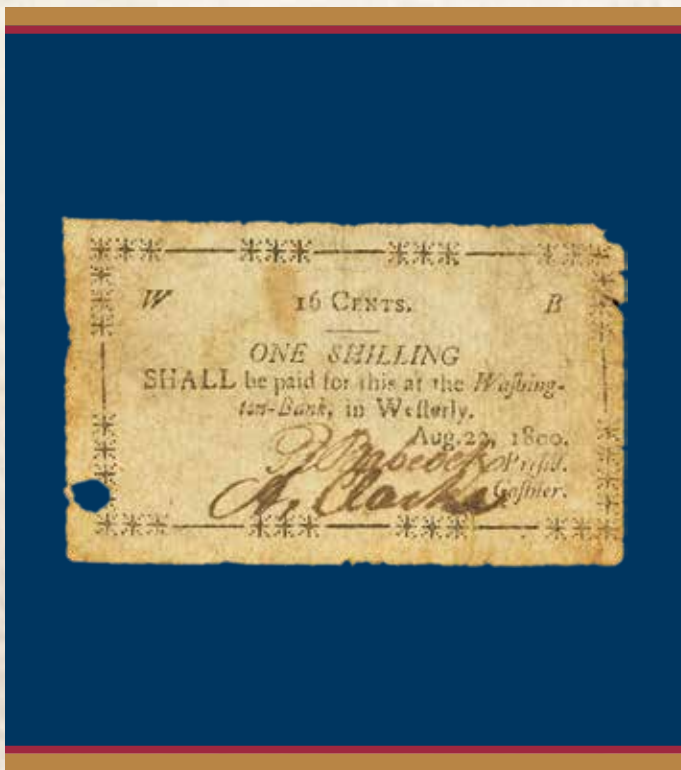 W 16 CENTS. B
ONE SHILLING
SHALL be paid for this at the Waſhing-
ton-Bank, in Weſterly.
Aug. 22, 1800.
Preſid.
A. Clarke Caſhier.